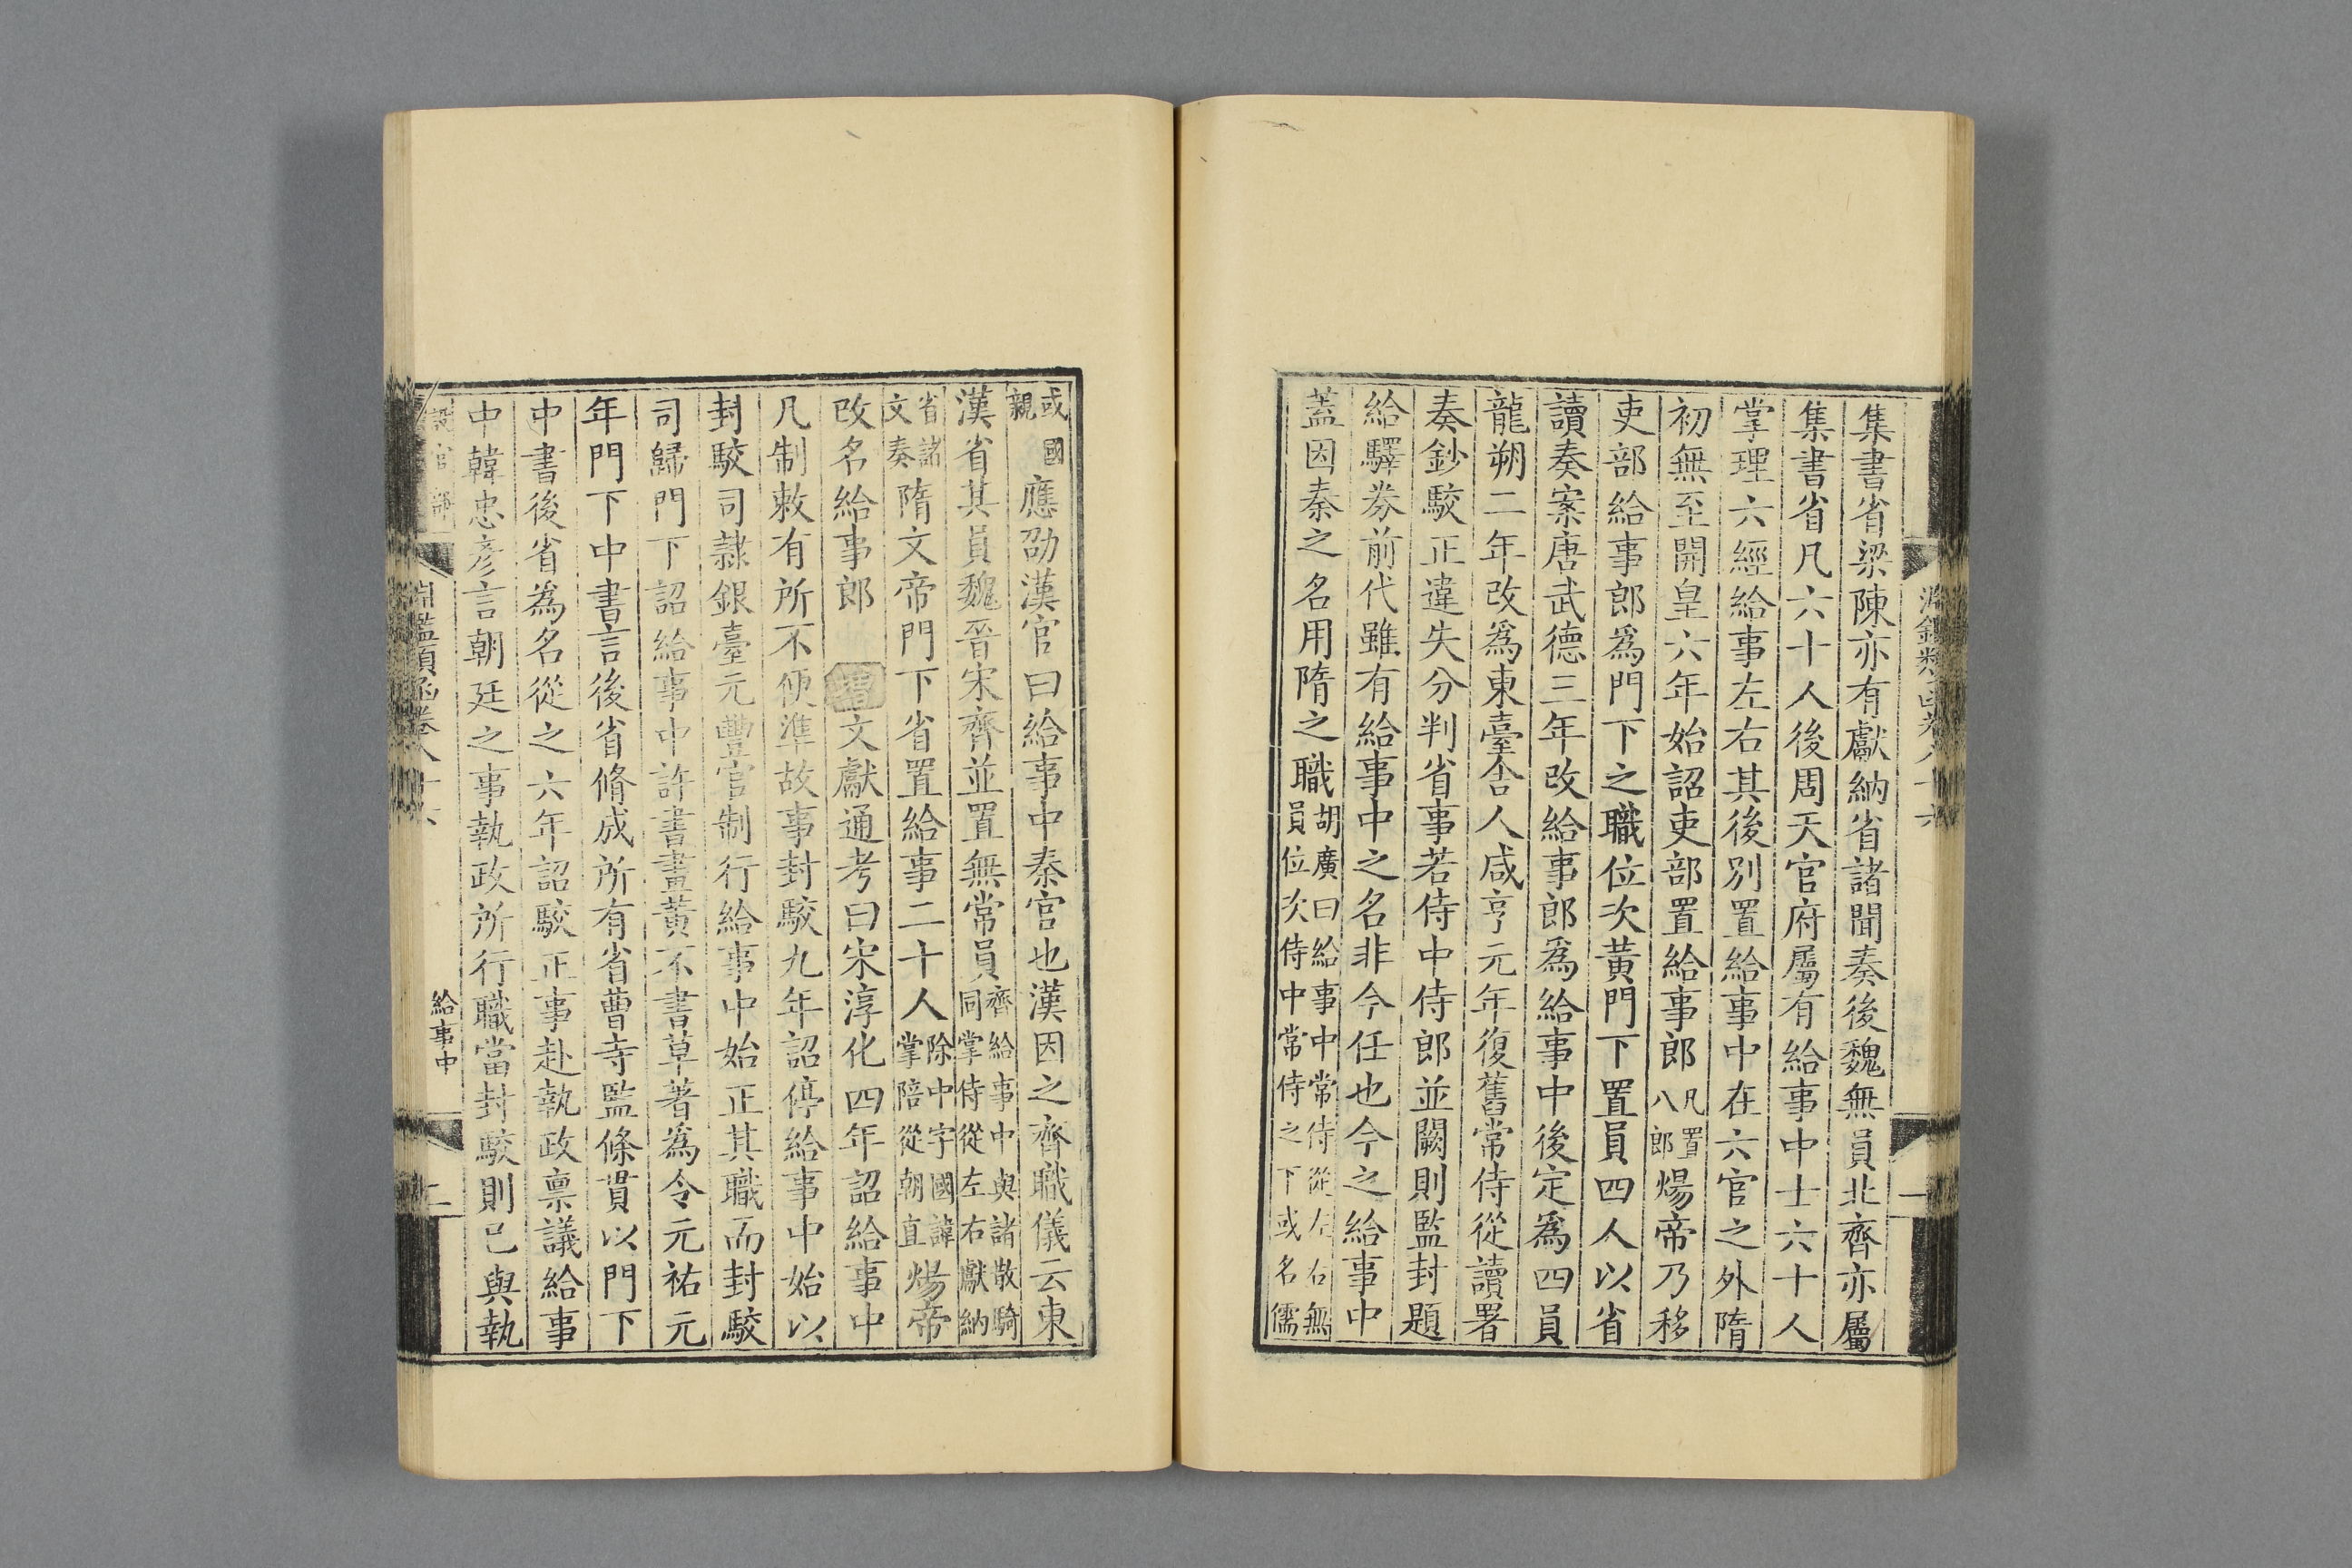 集書省梁陳亦有獻納省諸聞奏後魏無員北齊亦屬
集書省凡六十人後周天官府屬有給事中士六十人
掌理六經給事左右其後別置給事中在六官之外隋
初無至開皇六年始詔吏部置給事郎凡置八郎煬帝乃移
吏部給事郎爲門下之職位次黃門下置員四人以省
讀奏案唐武德三年改給事郎爲給事中後定爲四員
龍朔二年改爲東臺舍人咸亨元年復舊常侍從讀署
奏鈔駮正違失分判省事若侍中侍郎並闕則監封題
給驛券前代雖有給事中之名非今任也今之給事中
蓋因秦之名用隋之職胡廣曰給事中常侍從左右無員位次侍中常侍之下或名儒
或國親應劭漢官曰給事中秦官也漢因之齊職儀云東
漢省其員魏晉宋齊並置無常員齊給事中與諸散騎同掌侍從左右獻納
省諸文奏隋文帝門下省置給事二十人除中字國諱掌陪從朝直煬帝
改名給事郎增文獻通考曰宋淳化四年詔給事中
凡制敕有所不便準故事封駮九年詔停給事中始以
封駮司隷銀臺元豐官制行給事中始正其職而封駮
司歸門下詔給事中許書畫黃不書草著爲令元祐元
年門下中書言後省脩成所有省曹寺監條貫以門下
中書後省爲名從之六年詔駮正事赴執政稟議給事
中韓忠彥言朝廷之事執政所行職當封駮則已與執
淵鑑類函卷八十六
給事中
二